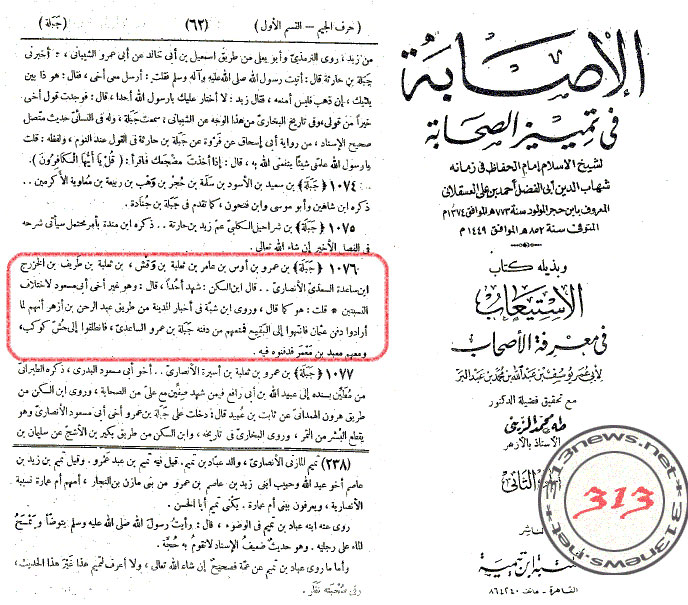 ( حرف الجيم – القسم الأول ) (٦٢) ( جَبَلة )
من زيد ، روى الترمذىّ وأبو يعلى من طريق اسمعيل بن أبى خالد عن أبى عمرو الشيبانى ، أخبرنى
جَبَلة بن حارثة قال : أتيت رسول الله صلى الله عليه وآله وسلم فقلت : أرسل معى أخى ، فقال : هو ذا بين
يديك ، إن ذهب فليس أمنعه ، فقال زيد : لا أختار عليك يا رسول الله أحدا ، قال : فوجدت قول أخى
خيراً من قولى وفى تاريخ البخارىّ من هذا الوجه عن الشيبانى ، سمعت جَبَلة ، وله فى النسائىّ حديث متّصل
صحيح الإسناد ، من رواية أبى إسحاق عن فَرْوة عن جَبَلة بن حارثة فى القول عند النوم ، ولفظه : قلت
يارسول الله علمنى شيئاً ينفعنى الله به ، قال : إذا أخذت مضجعك فاقرأ : ( قُلْ يَا أَيُّهَا الْكَافِرُونَ ) .
١٠٧٤ ( جَبَلة ) بن سعيد بن الأسود بن سَلَمة بن حُجْر بن وَهْب بن ربيعة بن مُعاوية الأكرمين ..
ذكره ابن شاهين وأبو موسى وابن فتحون ، كما تقدم فى جَبَلة بن جُنَادة .
١٠٧٥ ( جَبَلة ) بن شراحيل الكلبىّ عمّ زيد بن حارثة .. ذكره ابن مندة بأمر محتمل سيأتى شرحه
فى الفصل الأخير إن شاء الله تعالى .
١٠٧٦ ( جَبَلة ) بن عمرو بن أوس بن عامر بن ثعلبة بن وَقْش ، بن ثعلبة بن طريف بن الخزرج
ابن ساعدة السعدىّ الأنصارىّ .. قال ابن السكن : شهد أُحُداً ، قال : وهو غير أخى أبى مسعود لاختلاف
النسبتين * قلت : هو كما قال ، وروى ابن شبّة فى أخبار المدينة من طريق عبد الرحمن بن أزهر أنهم لما
أرادوا دفن عثمان فانتهوا إلى البَقيع فمنعهم من دفنه جَبَلة بن عمرو الساعدىّ ، فانطلقوا إلى حُشّ كَوْكَب ،
ومعهم معبد بن مَعْمَر فدفنوه فيه .
١٠٧٧ ( جَبَلة ) بن عمرو بن ثعلبة بن أسيرة الأنصارىّ .. أخو أبى مسعود البدرى ، ذكره الطبرانى
من مُطَيَّن بسنده إلى عبيد الله بن أبى رافع فيمن شهد صِفِّين مع علىّ من الصحابة ، وروى ابن السكن من
طريق هرون الهمدانى عن ثابت بن عُبيد قال : دخلت على جَبَلة بن عمرو أخى أبى مسعود الأنصارىّ وهو
يقطع البُسْر من التمر ، وروى البخارىّ فى تاريخه ، وابن السكن من طريق بكير بن الأشجّ عن سليمان بن
(٢٣٨) تميم المازنى الأنصارىّ ، والد عباد بن تميم . قيل فيه تميم بن عبد عَمْرو . وقيل تميم بن زيد بن
عاصم أخو عبد الله وحبيب ابنى زيد بن عاصم بن عمرو من بنى مازن بن النجار ، أمهم أم عمارة نسيبة
الأنصارية ، ويعرفون ببنى أم عمارة . يكنّى تميم أبا الحسن .
روى عنه ابنه عباد بن تميم فى الوضوء ، قال : رأيتُ رسولَ الله صلى الله عليه وسلم يتوضّأ ويَمْسَحُ
الماء على رجليه . وهو حديث ضعيفُ الإسناد لا تقومُ به حُجّة .
وأما ما روى عباد بن تميم عن عمّه فصحيحٌ إن شاء الله تعالى ، ولا أعرف لتميم هذا غيْرَ هذا الحديث ،
وفى صُحْبَته نَظَر .
الإصابة
فى تمييز الصحابة
لشيخ الإسلام إمام الحفاظ فى زمانه
شهاب الدين أبى الفضل أحمد بن على العسقلانى
المعروف بابن حجر المولود سنة ٧٧٣هـ الموافق ١٣٧٤م
المتوفى سنة ٨٥٢هـ الموافق ١٤٤٩م
وبذيله كتاب
الاستيعاب
فى معرفة الأصحاب
لأبى عمر يوسف بن عبد الله بن محمد بن عبد البر
مع تحقيق فضيلة الدكتور
طه محمد الزينى
الأستاذ بالأزهر
الجزء الثانى
الناشر
مكتبة ابن تيمية
القاهرة ـ هاتف ٨٦٤٢٤٠
313
313news.net*313news.net*